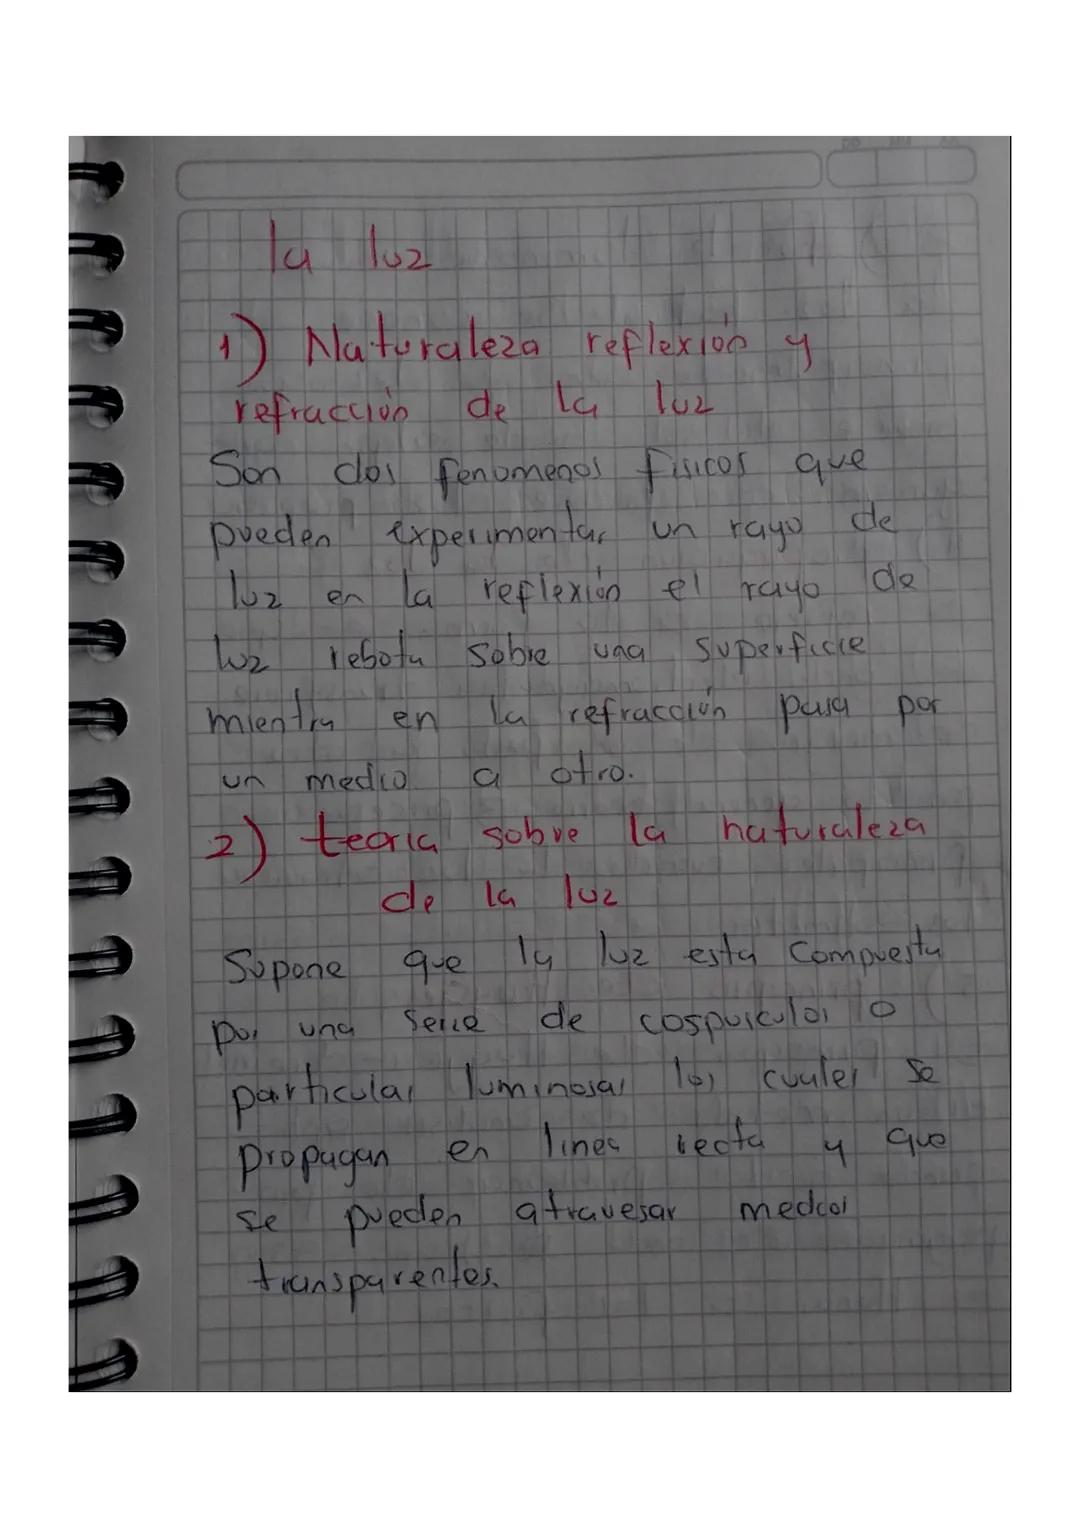 la luz
1) Naturaleza reflexión y
refracción de la luz
Son dos fenomenos fisicos que
pueden experimentar un rayo de
luz en la reflexión el rayo de
luz rebota sobre una superficie
mientra en la refracción pasa por
un medio a otro.
2) teoria sobre la naturaleza
de la luz
Supone que la luz esta compuesta
por una serie de cospusculos o
particulas luminosas los cuales se
propagan en linea recta y que
se pueden atravesar medios
transparentes.